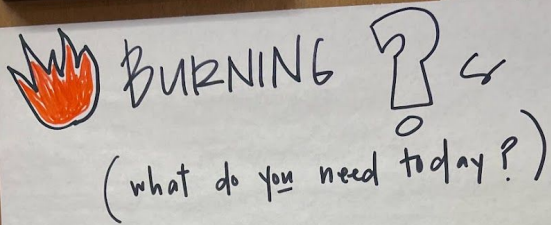 BURNING ?s
(what do you need today?)